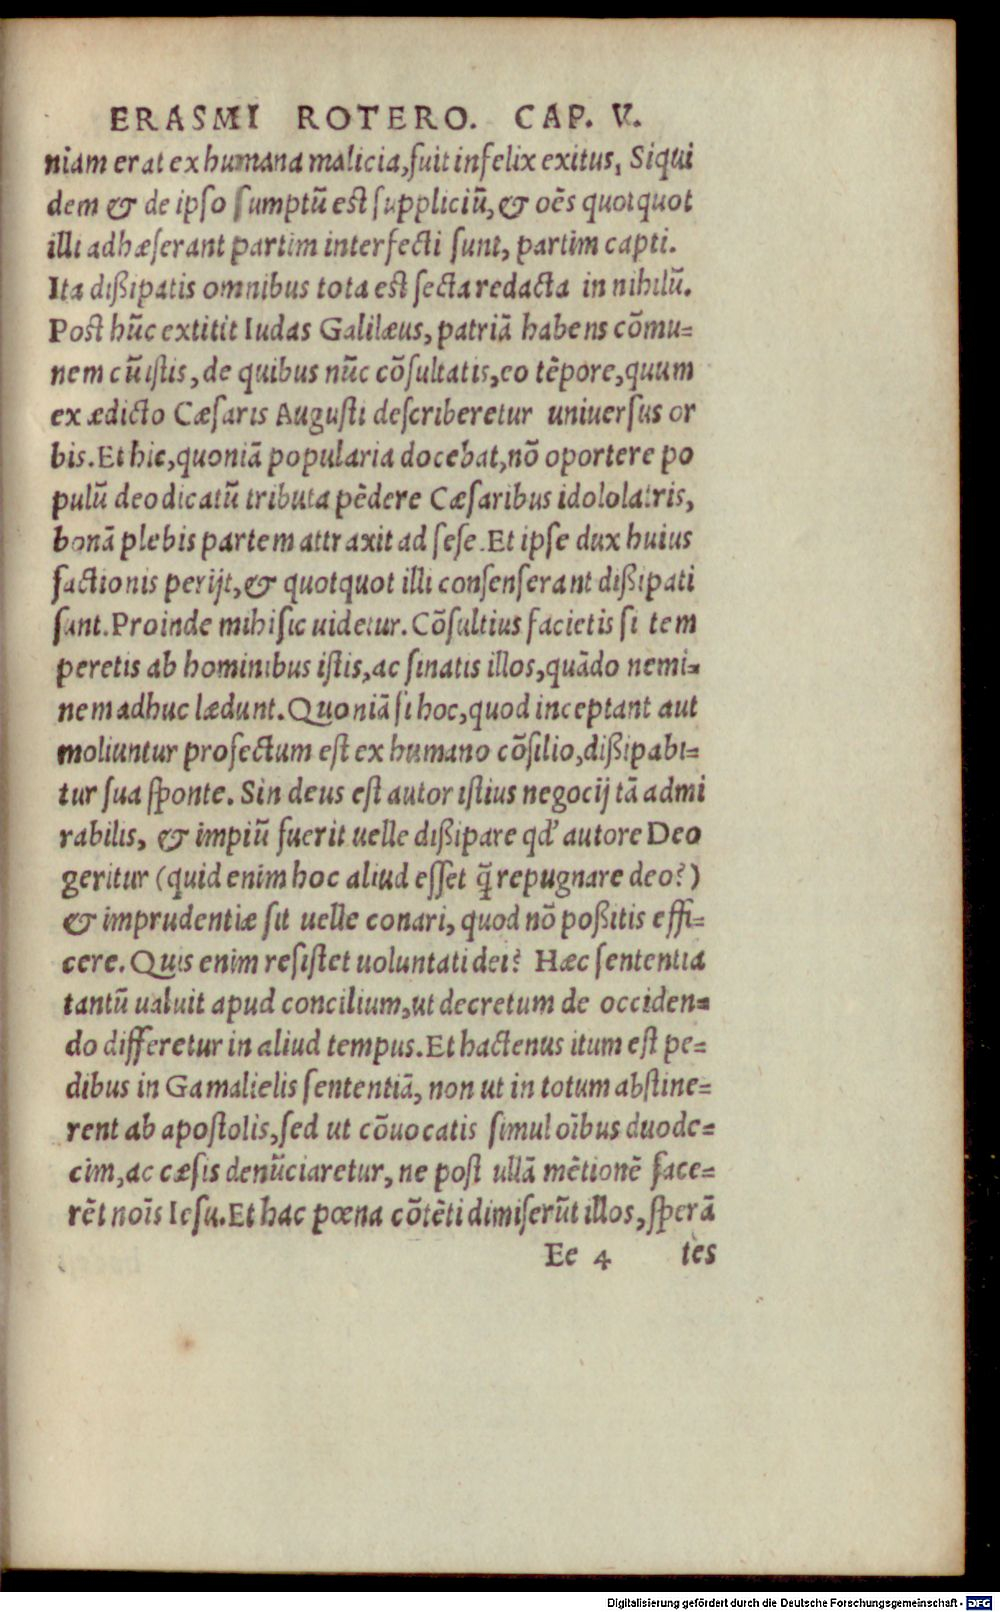 ERASMI ROTERO. CAP. V.
niam erat ex humana malicia, fuit infelix exitus, Siqui
dem & de ipso sumptũ est suppliciũ, & oẽs quotquot
illi adhæserant partim interfecti sunt, partim capti.
Ita dißipatis omnibus tota est secta redacta in nihilũ.
Post hũc extitit Iudas Galilæus, patriã habens cõmu=
nem cũ istis, de quibus nũc cõsultatis, eo tẽpore, quum
ex ædicto Cæsaris Augusti describeretur uniuersus or
bis. Et hic, quoniã popularia docebat, nõ oportere po
pulũ deo dicatũ tributa pẽdere Cæsaribus idololatris,
bonã plebis partem attraxit ad sese. Et ipse dux huius
factionis perijt, & quotquot illi consenserant dißipati
sunt. Proinde mihi sic uidetur. Cõsultius facietis si tem
peretis ab hominibus istis, ac sinatis illos, quãdo nemi=
nem adhuc lædunt. Quoniã si hoc, quod inceptant aut
moliuntur profectum est ex humano cõsilio, dißipabi=
tur sua sponte. Sin deus est autor istius negocij tã admi
rabilis, & impiũ fuerit uelle dißipare qd' autore Deo
geritur (quid enim hoc aliud esset q̃ repugnare deo?)
& imprudentiæ sit uelle conari, quod nõ poßitis effi=
cere. Quis enim resistet uoluntati dei? Hæc sententia
tantũ ualuit apud concilium, ut decretum de occiden=
do differetur in aliud tempus. Et hactenus itum est pe=
dibus in Gamalielis sententiã, non ut in totum abstine=
rent ab apostolis, sed ut cõuocatis simul oĩbus duode=
cim, ac cæsis denũciaretur, ne post ullã mẽtionẽ face=
rẽt noĩs Iesu. Et hac pœna cõtẽti dimiserũt illos, sperã
Ee 4 tes
Digitalisierung gefördert durch die Deutsche Forschungsgemeinschaft - DFG